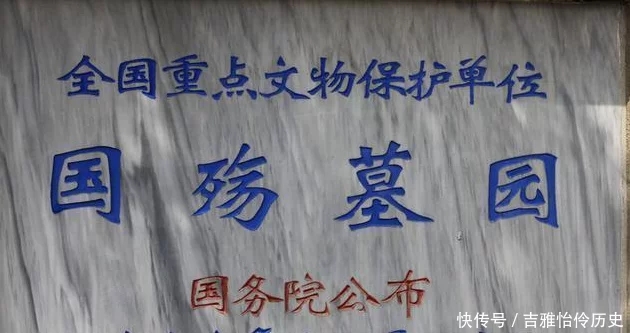 全国重点文物保护单位
国殇墓园
国务院公布
快传号／吉雅怡伶历史